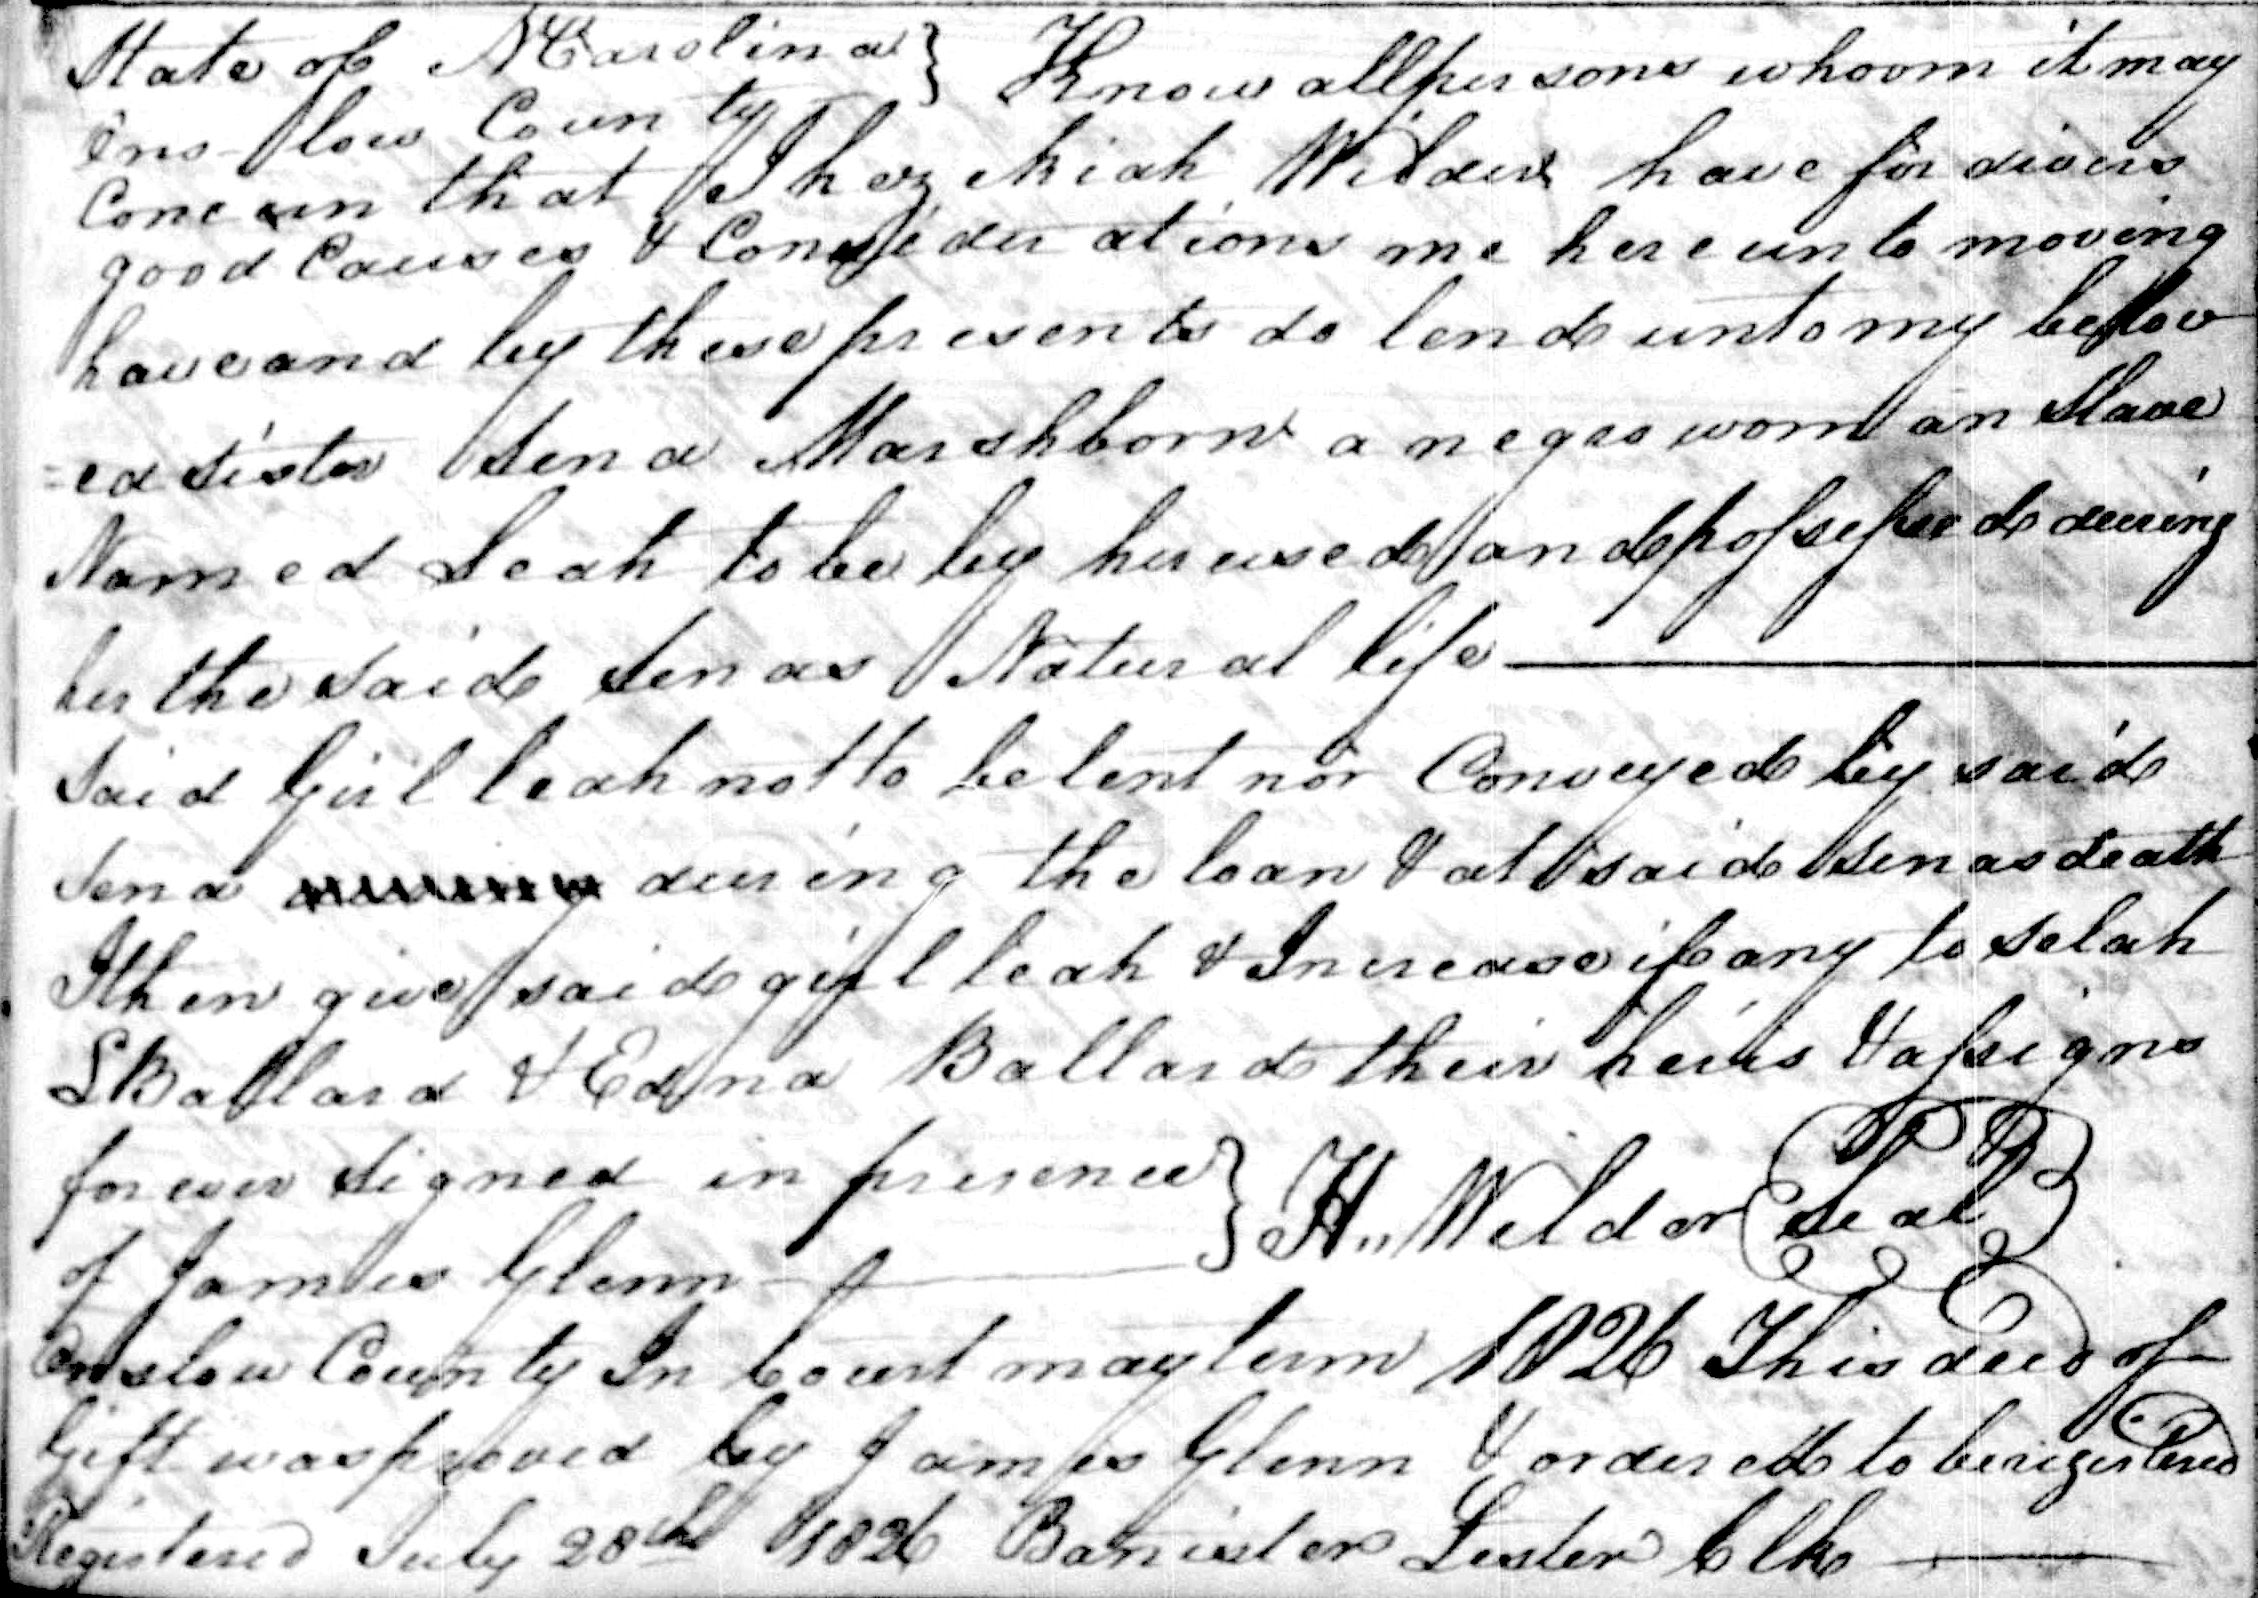 State of N Carolina } Know all persons whoom it may
Ons-low County
Concern that I hezekiah Wilder have for divers
good Causes & Considerations me hereunto moving
have and by these presents do lend unto my belov
=ed sister Sena Marshborn a negro woman Slave
Named Leah to be by her used and possessed during
her the said Senas Natural life
Said Girl leah not to be lent nor Conveyed by said
Sena during the loan & at said Senas death
I then give said girl leah & Increase if any to selah
L Ballard & Edna Ballard their heirs & assigns
forever Signed in presence } H,, Wilder Seal
of James Glenn
Onslow County In Court may term 1826 This deed of
Gift was proved by James Glenn & ordered to be registered
Registered July 28th 1826 Banister Lester Clk